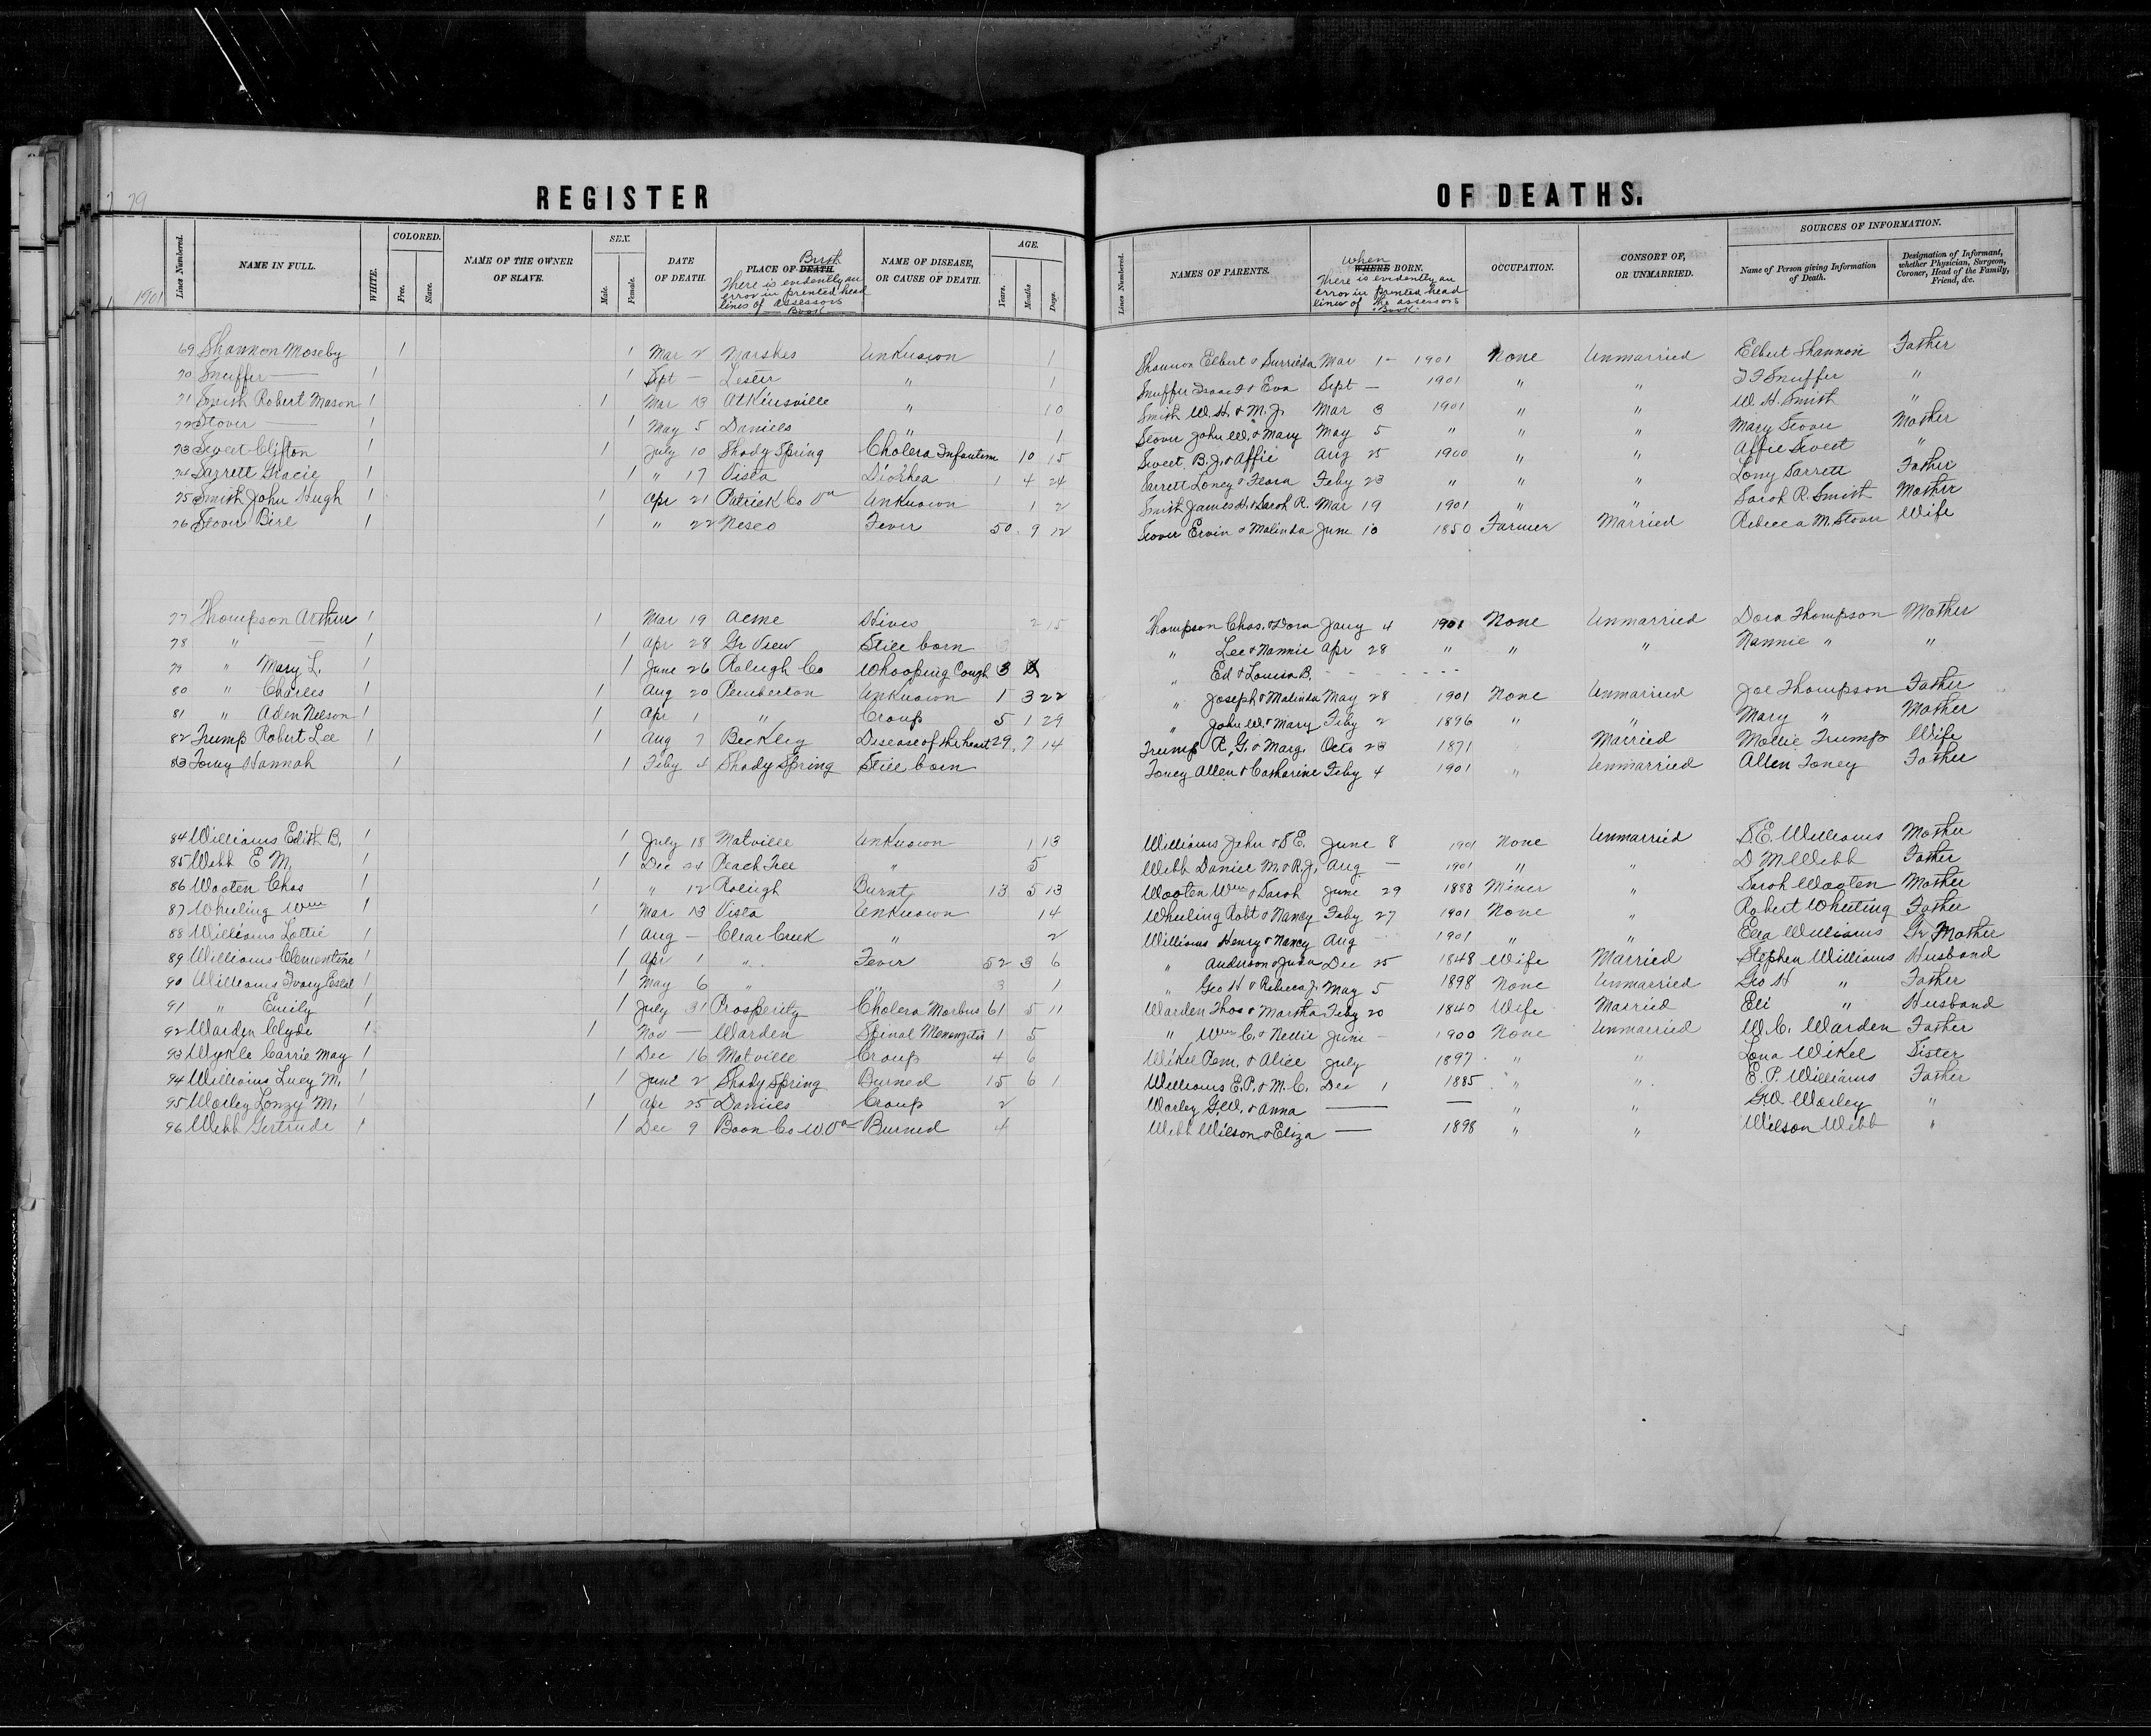 79
REGISTER OF DEATHS.
1901
Lines Numbered. NAME IN FULL. WHITE. COLORED. Free. Slave. NAME OF THE OWNER OF SLAVE. SEX. Male. Female. DATE OF DEATH. PLACE OF DEATH. Birth There is evidently an error in printed head lines of assessors Book NAME OF DISEASE, OR CAUSE OF DEATH. AGE. Years. Months Days.
Lines Numbered. NAMES OF PARENTS. WHERE BORN. When There is evidently an error in printed head lines of the assessors Book. OCCUPATION. CONSORT OF, OR UNMARRIED. SOURCES OF INFORMATION. Name of Person giving Information of Death. Designation of Informant, whether Physician, Surgeon, Coroner, Head of the Family, Friend, &c.
69 Shannon Moseby 1 1 Mar 2 Marshes Unknown 1 Shannon Elbert & Surrilda Mar 1 - 1901 None Unmarried Elbert Shannon Father
70 Snuffer — 1 1 Sept — Lester " 1 Snuffer Isaac F & Eva Sept — 1901 " " I F Snuffer "
71 Smith Robert Mason 1 1 Mar 13 Atkinsville " 10 Smith W. H. & M. J. Mar 3 1901 " " W. H. Smith "
72 Stover — 1 1 May 5 Daniels " 1 Stover John W. & Mary May 5 " " " Mary Stover Mother
73 Sweet Clifton 1 1 July 10 Shady Spring Cholera Infantum 10 15 Sweet B. J. & Affie Aug 25 1900 " " Affie Sweet "
74 Sarrett Gracie 1 1 " 17 Vista Diorhea 1 4 24 Sarrett Loney & Flora Feby 23 " " " Lony Sarrett Father
75 Smith John Hugh 1 1 Apr 21 Patrick Co Va Unknown 1 2 Smith James H. & Sarah R. Mar 19 1901 " " Sarah R. Smith Mother
76 Stover Bire 1 1 " 22 Neseo Fever 50 9 12 Stover Ervin & Malinda June 10 1850 Farmer Married Rebecca M. Stover Wife
77 Thompson Arthur 1 1 Mar 19 Acme Hives 2 15 Thompson Chas. & Dora Jany 4 1901 None Unmarried Dora Thompson Mother
78 " — 1 1 Apr 28 Gr View Still born " Lee & Nannie Apr 28 " " " Nannie " "
79 " Mary L. 1 1 June 26 Raleigh Co Whooping Cough 3 " Ed & Louisa B. - - - -
80 " Charles 1 1 Aug 20 Pemberton Unknown 1 3 22 " Joseph & Malinda May 28 1901 None Unmarried Joe Thompson Father
81 " Aden Nelson 1 1 Apr 1 " Croup 5 1 29 " John W. & Mary Feby 2 1896 " " Mary " Mother
82 Trump Robert Lee 1 1 Aug 7 Beckley Disease of the heart 29 7 14 Trump R. G. & Marg. Octo 23 1871 " Married Mollie Trump Wife
83 Toney Hannah 1 1 Feby 4 Shady Spring Still born Toney Allen & Catharine Feby 4 1901 " Unmarried Allen Toney Father
84 Williams Edith B. 1 1 July 18 Matville Unknown 1 13 Williams John & S E. June 8 1901 None Unmarried S. E. Williams Mother
85 Webb E M. 1 1 Dec 24 Peach Tree " 5 Webb Daniel M. & R. J. Aug — 1901 " " D M Webb Father
86 Wooten Chas 1 1 " 12 Raleigh Burnt 13 5 13 Wooten Wm & Sarah June 29 1888 Miner " Sarah Wooten Mother
87 Wheeling Wm 1 1 Mar 13 Vista Unknown 14 Wheeling Robt & Nancy Feby 27 1901 None " Robert Wheeling Father
88 Williams Lottie 1 1 Aug — Clear Creek " 2 Williams Henry & Nancy Aug - 1901 " " Ella Williams Gr Mother
89 Williams Clementine 1 1 Apr 1 " Fever 52 3 6 " Anderson & Juda Dec 25 1848 Wife Married Stephen Williams Husband
90 Williams Ivory Estel 1 1 May 6 " " 3 1 " Geo H & Rebecca J. May 5 1898 None Unmarried Geo H " Father
91 " Emily 1 1 July 31 Prosperity Cholera Morbus 61 5 11 Warden Thos & Martha Feby 20 1840 Wife Married Eli " Husband
92 Warden Clyde 1 1 Nov — Warden Spinal Menengites 1 5 " Wm C. & Nellie June - 1900 None Unmarried W. C. Warden Father
93 Wykle Carrie May 1 1 Dec 16 Matville Croup 4 6 Wikel Pem. & Alice July 1897 " " Lona Wikel Sister
94 Williams Lucy M. 1 1 June 2 Shady Spring Burned 15 6 1 Williams E. P. & M. C. Dec 1 1885 " " E. P. Williams Father
95 Worley Lonzy M. 1 1 Apr 25 Daniels Croup 2 Worley G. W. & Anna — — " " G W. Worley "
96 Webb Gertrude 1 1 Dec 9 Boon Co W. Va Burned 4 Webb Wilson & Eliza — 1898 " " Wilson Webb "